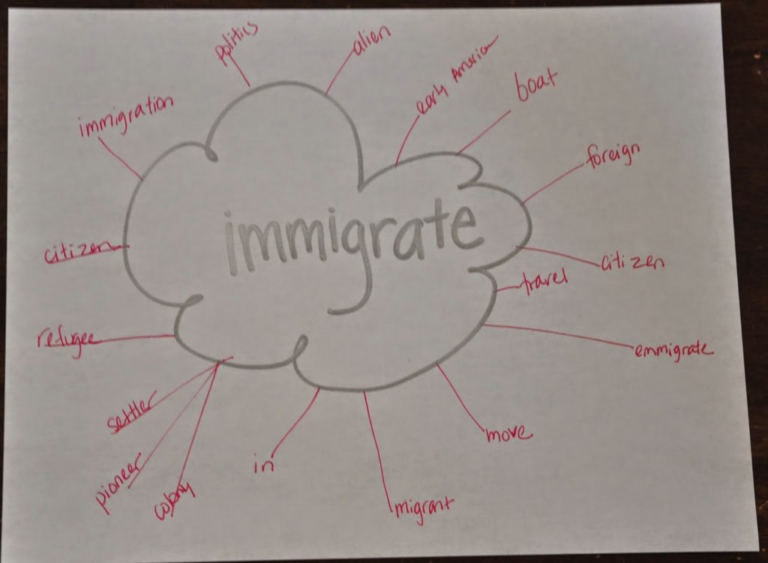 politics
alien
early America
boat
immigration
foreign
immigrate
citizen
citizen
travel
refugee
emmigrate
settler
move
in
pioneer
colony
migrant